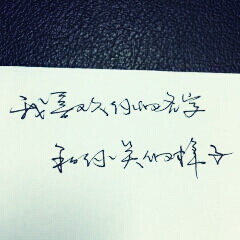 我喜欢你的名字
和你笑的样子